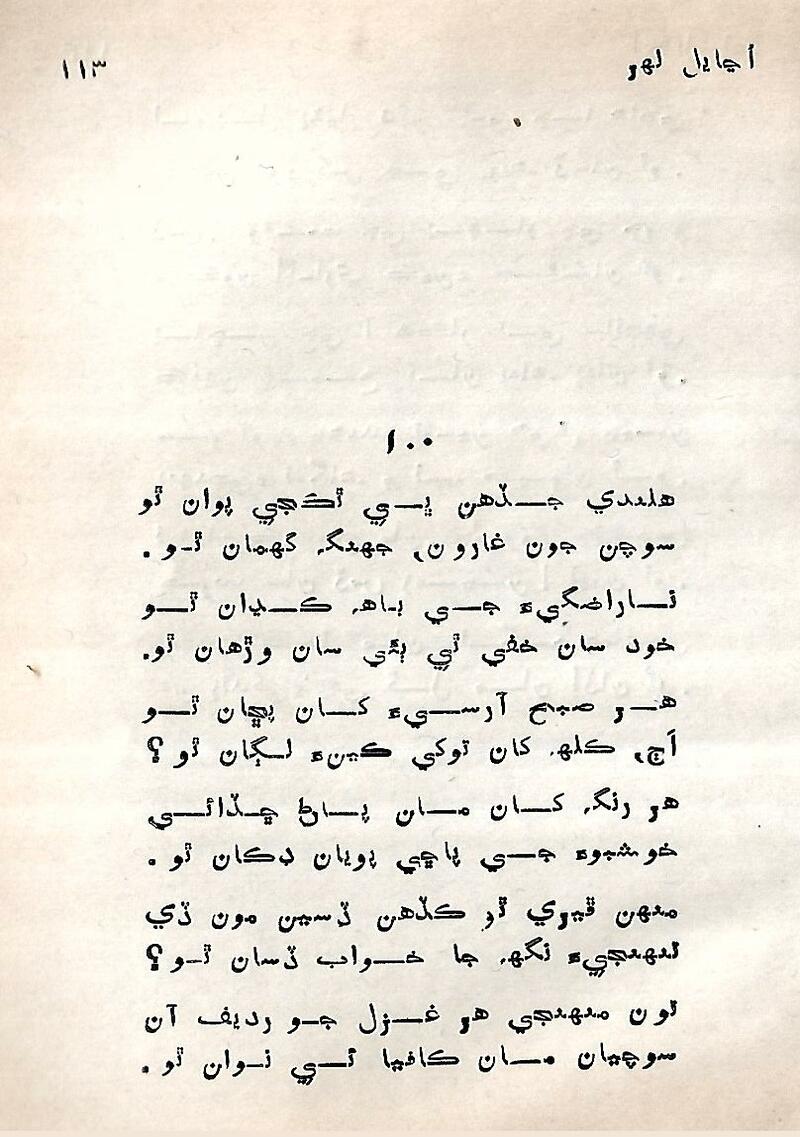 اڃايل لهر
١١٣
١٠٠
هلندي جڏهن ڀي ٿڪجي پوان ٿو
سوچن جون غارون، جهنگ گهمان ٿو.
ناراضگيءَ جي باهه کڍان ٿو
خود سان خفي ٿي ٻئي سان وڙهان ٿو.
هر صبح آرسيءَ کان پڇان ٿو
اڄ، ڪلهه کان توکي ڪيئن لڳان ٿو؟
هر رنگ کان مان پاڻ ڇڏائي
خوشبوءِ جي پاڇي پويان ڊڪان ٿو.
منهن ڦيري ٿو ڪڏهن ڏسين مون ڏي
تنهنجيءَ نگهه جا خواب ڏسان ٿو؟
تون منهنجي هر غزل جو رديف آن
سوچيان مان ڪافيا ئي نوان ٿو.